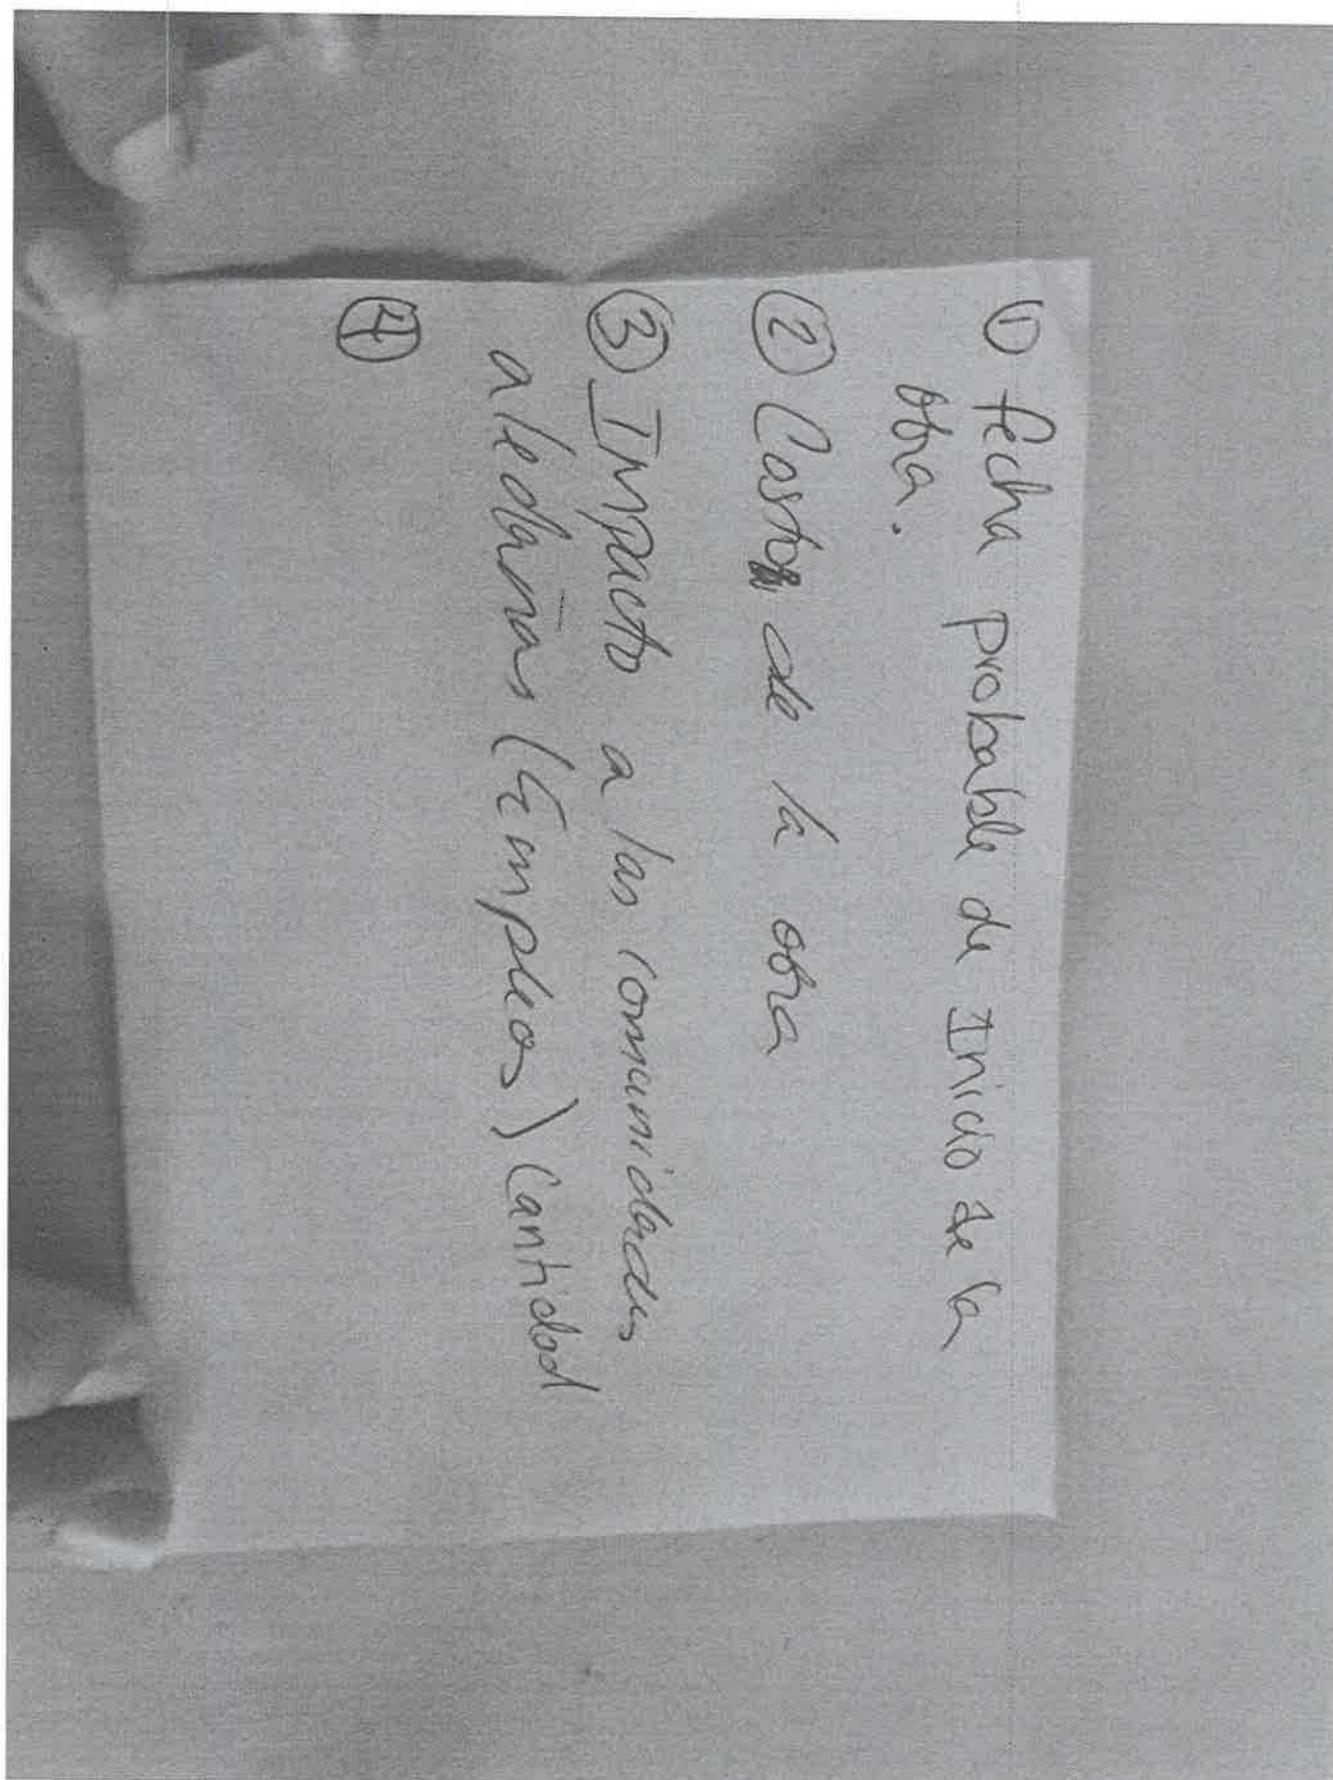 ① fecha probable de Inicio de la
obra.
② Costo de la obra
③ Impacto a las comunidades
aledañas (Empleos) Cantidad
④